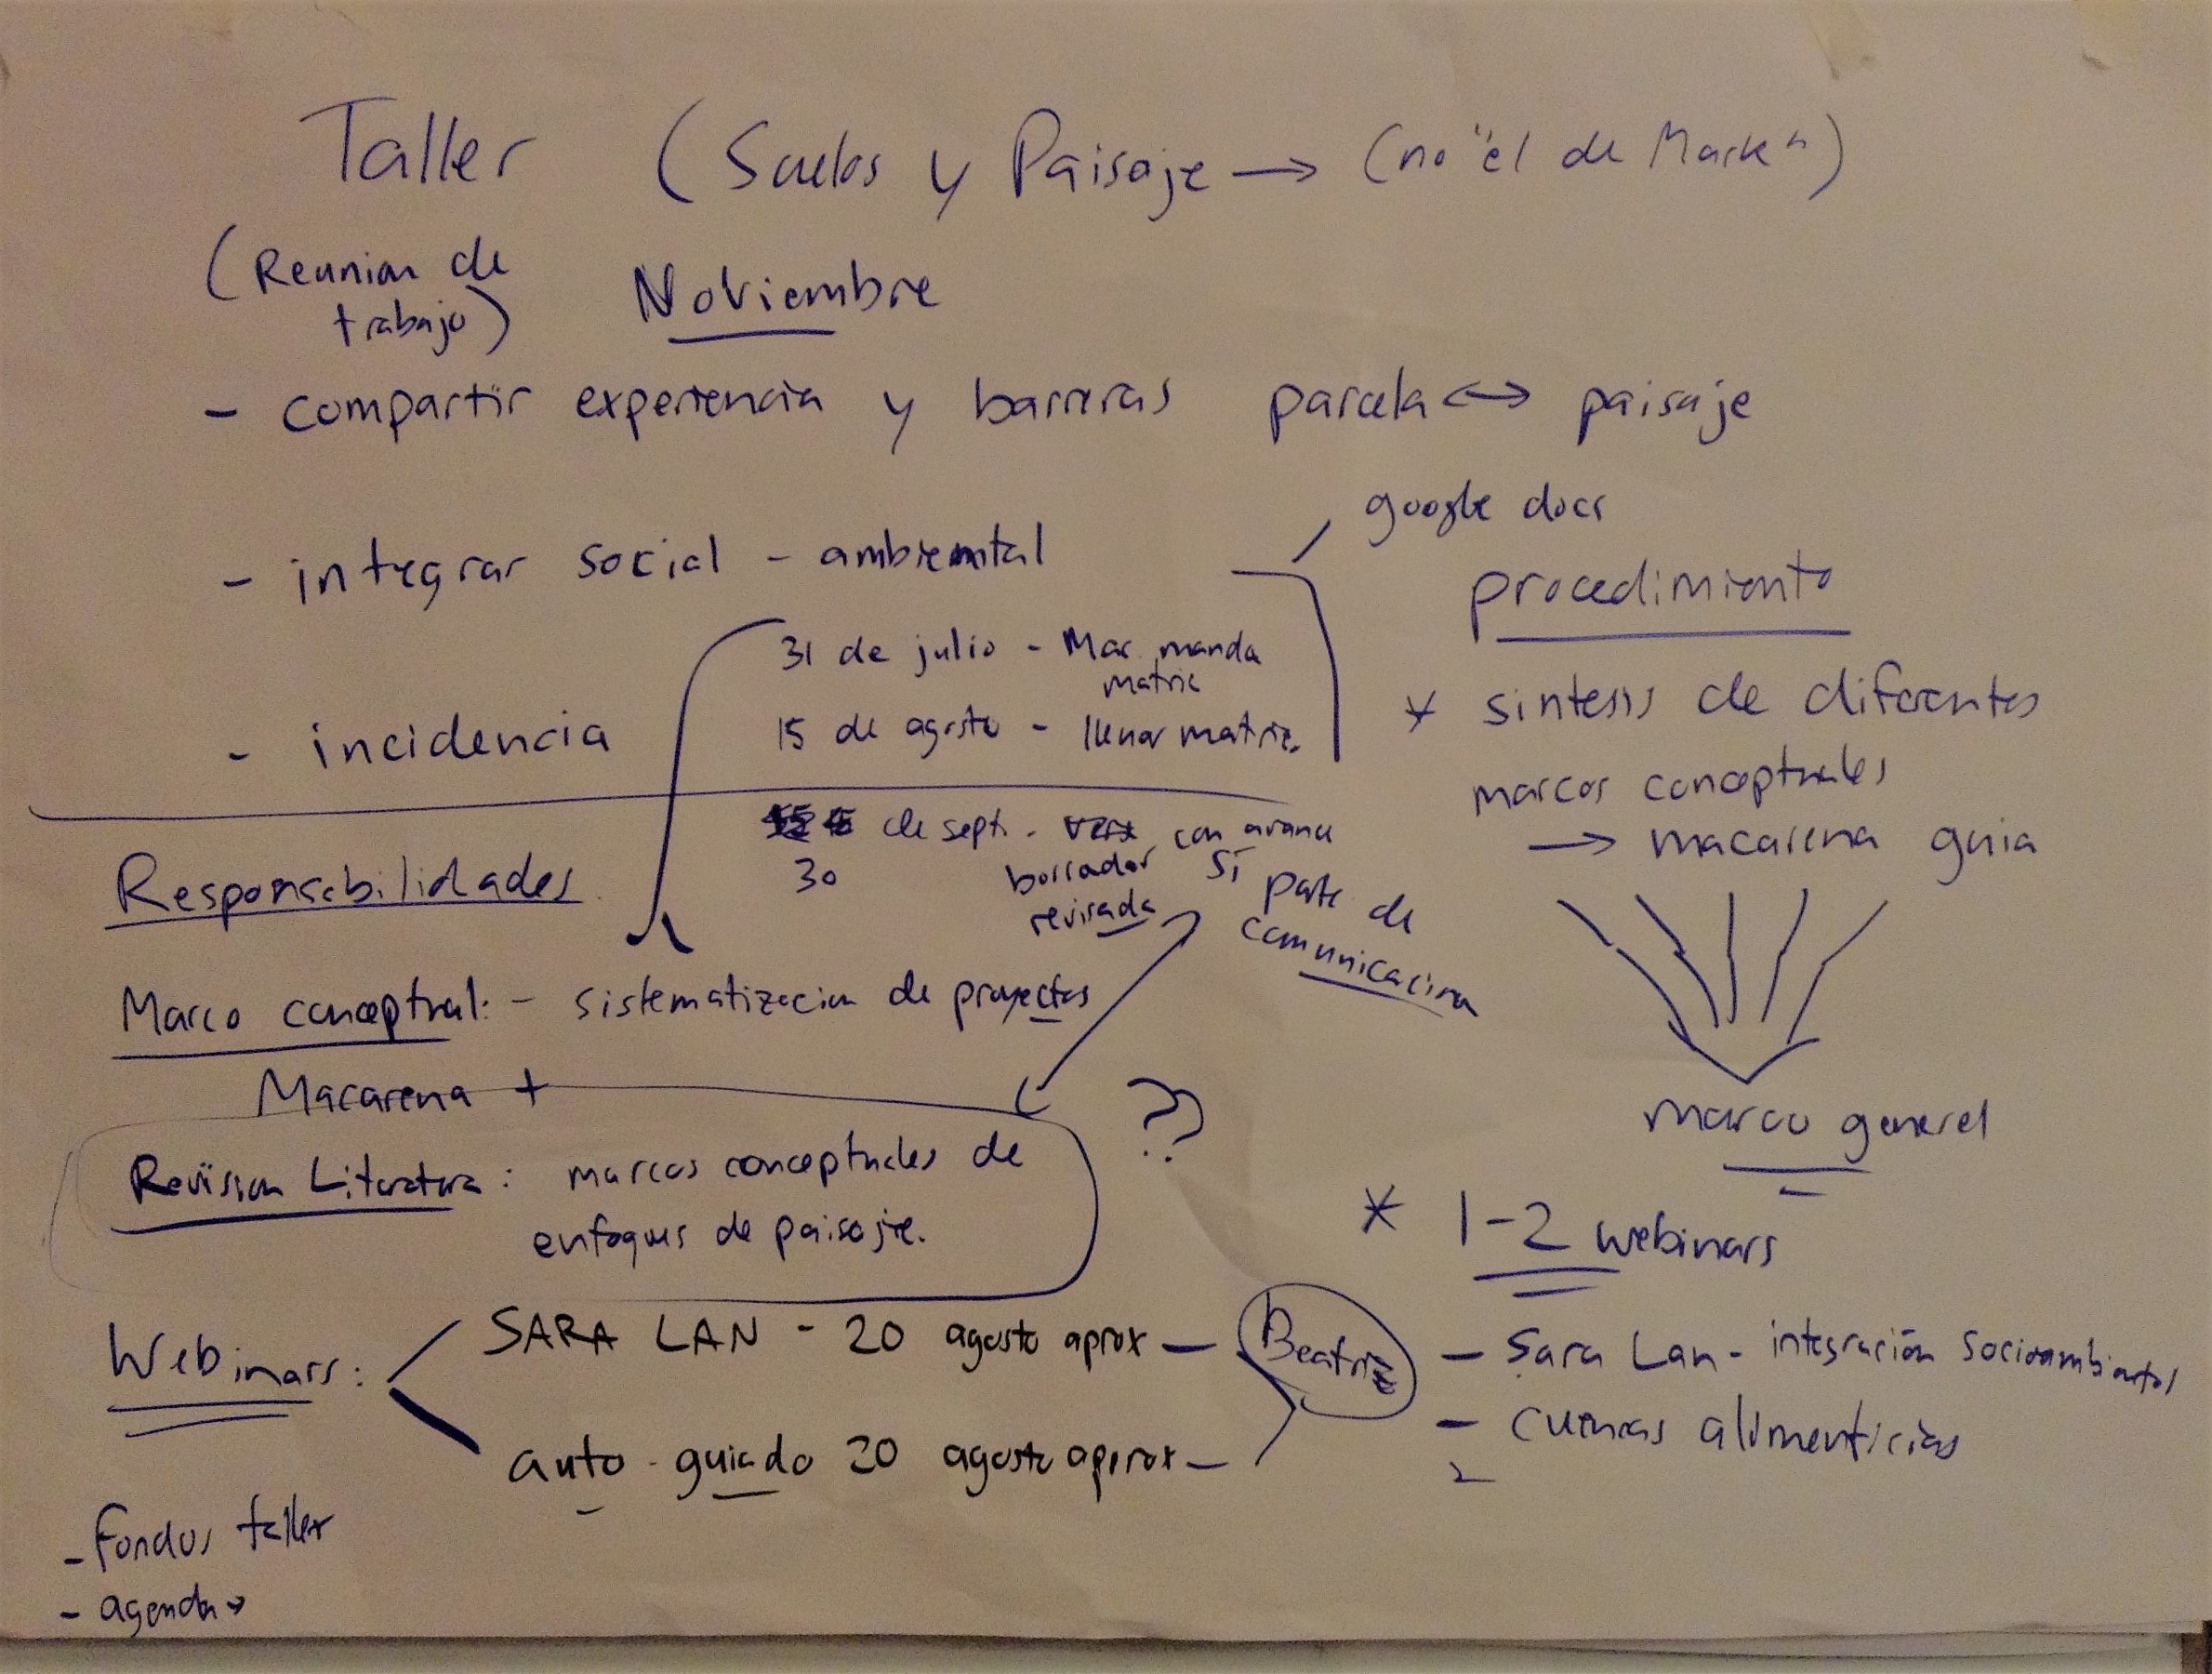 Taller (Suelos y Paisaje → (no "el de Mark")
(Reunion de
trabajo)
Noviembre
- compartir experiencia y barreras parcela ↔ paisaje
- integrar social - ambiental
- incidencia
google docs
31 de julio - Mac manda
matriz
15 de agosto - llenar matriz.
de sept. - con avance
30
borrador si
revisada
parte de
comunicacion
procedimiento
* sintesis de diferentes
marcos conceptuales
→ macarena guia
marco general
* 1-2 webinars
- Sara Lan - integración socioambiental
- cuencas alimenticias
-
Responsabilidades
Marco conceptual: - sistematizacion de proyectos
Macarena +
Revision Literatura: marcos conceptuales de
enfoques de paisaje.
??
Webinars:
SARA LAN - 20 agosto aprox -
Beatriz
auto-guiado 20 agosto aprox -
- fondos taller
- agenda →